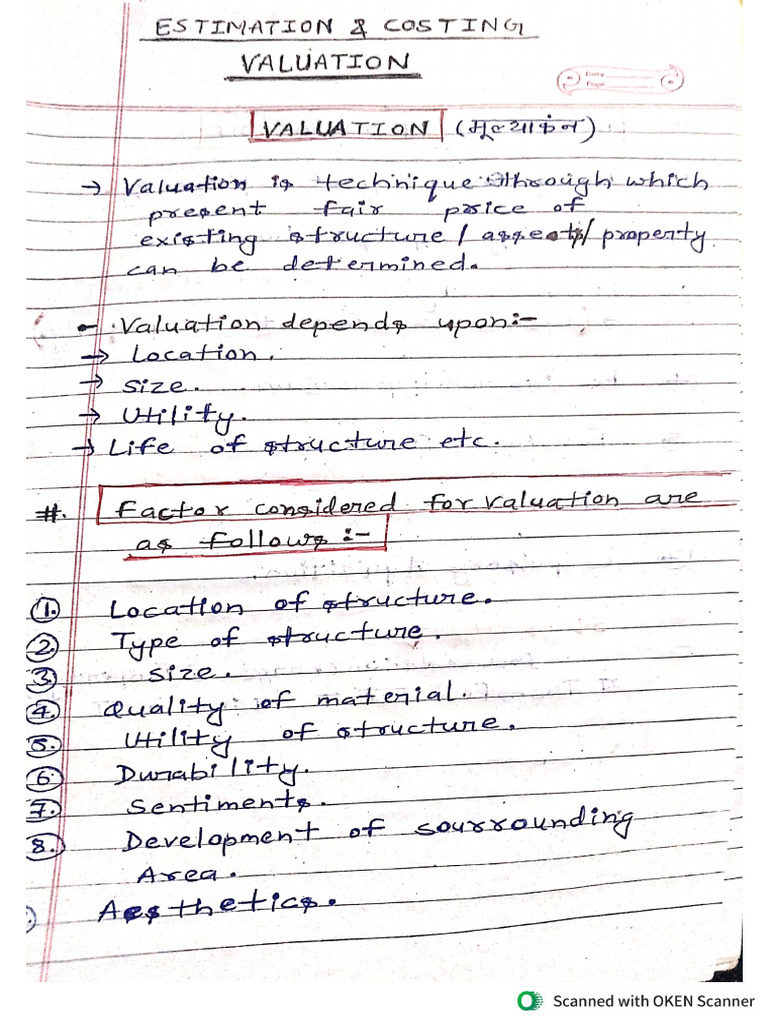 ESTIMATION & COSTING
VALUATION
Date
Page
VALUATION (मूल्याकंन)
→ Valuation is technique through which
present fair price of
existing structure / assets / property
can be determined.
– Valuation depends upon:-
→ Location.
→ Size.
→ Utility.
→ Life of structure etc.
#. Factor considered for valuation are
as follows :-
1. Location of structure.
2. Type of structure.
3. Size.
4. Quality of material.
5. Utility of structure.
6. Durability.
7. Sentiments.
8. Development of sourrounding
Area.
Aesthetics.
Scanned with OKEN Scanner